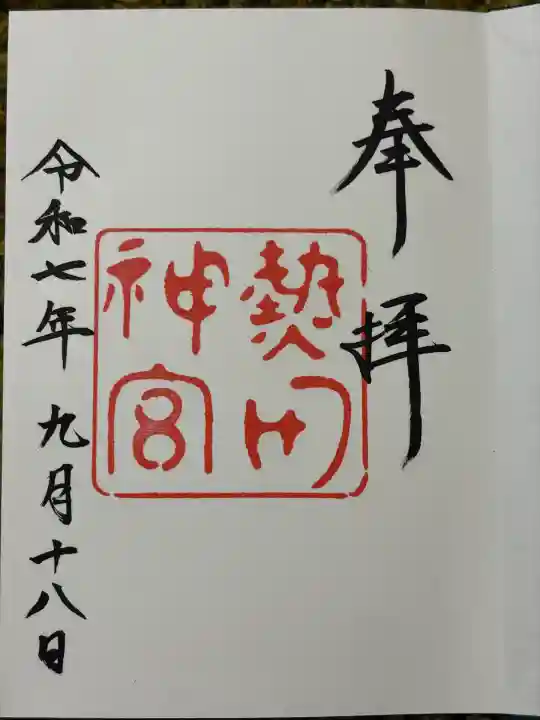 奉拝
熱田
神宮
令和七年 九月十八日